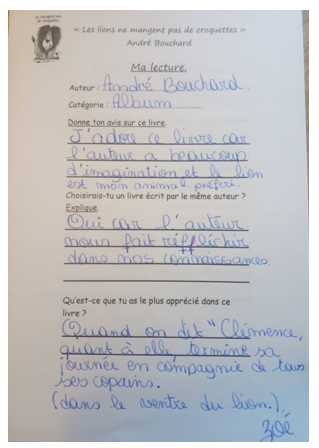 « Les lions ne mangent pas de croquettes »
André Bouchard
Ma lecture.
Auteur : André Bouchard.
Catégorie : Album
Donne ton avis sur ce livre.
J'adore ce livre car
l'auteur a beaucoup
d'imagination et le lion
est mon animal préféré.
Choisirais-tu un livre écrit par le même auteur ?
Explique.
Oui car l'auteur
nous fait réffléchir
dans nos connaissances.
Qu'est-ce que tu as le plus apprécié dans ce
livre ?
Quand on dit "Clémence,
quant à elle, termine sa
journée en compagnie de tous
ses copains.
(dans le ventre du lion.)
Zoé